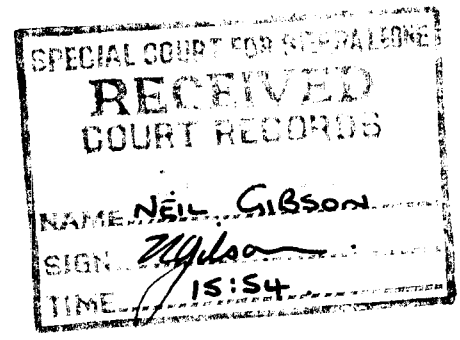 SPECIAL COURT FOR SIERRA LEONE
RECEIVED
COURT RECORDS
NAME NEIL GIBSON
SIGN
TIME 15:54